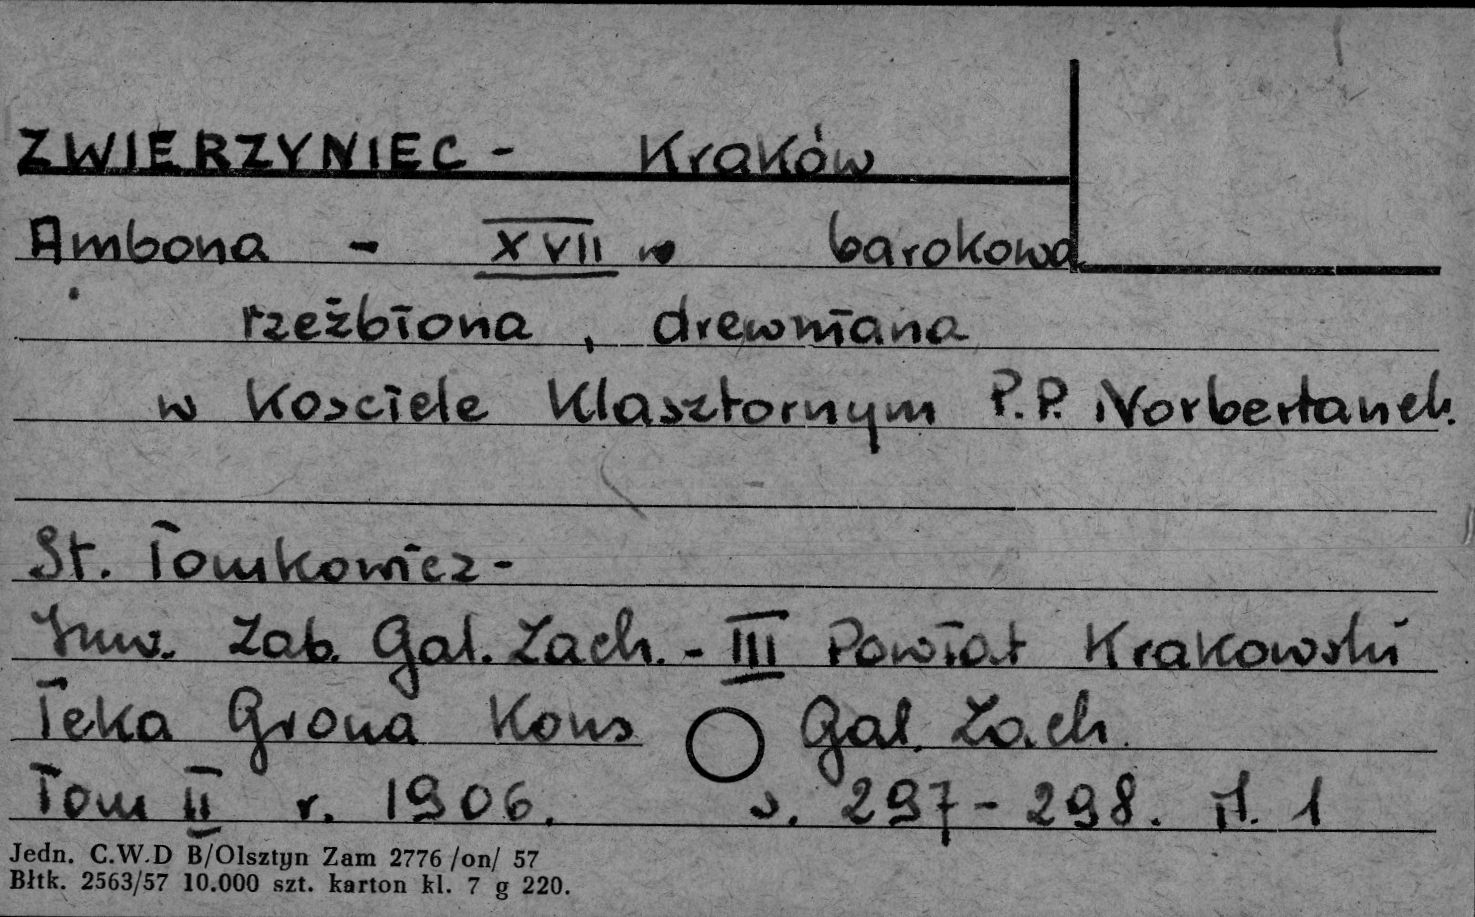 ZWIERZYNIEC - Kraków
Ambona - XVII w barokowa
rzeźbiona, drewniana
w Kosciele Klasztornym P.P. Norbertanek.
St. Tomkowicz -
Inw. Zab. Gal. Zach. - III Powiat Krakowski
Teka Grona Kons Gal. Zach.
Tom II r. 1906. s. 297-298. il. 1
Jedn. C.W.D B/Olsztyn Zam 2776 /on/ 57
Błtk. 2563/57 10.000 szt. karton kl. 7 g 220.